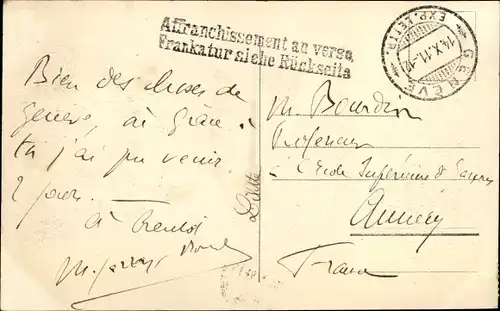 Affranchissement au verso,
Frankatur siehe Rückseite
GENÈVE
EXP. LETTR.
14.X.11.-12
Bien des choses de
Genève, où grâce à
toi j'ai pu venir
2 jours.
à bientôt
M. Bourdin
Professeur
à l'École Supérieure de
Annecy
France